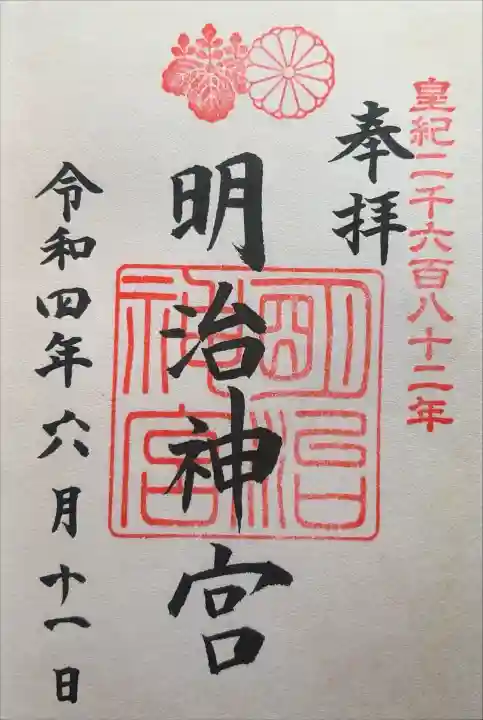 皇紀二千六百八十二年
奉拝
明治神宮
明治神宮
令和四年六月十一日